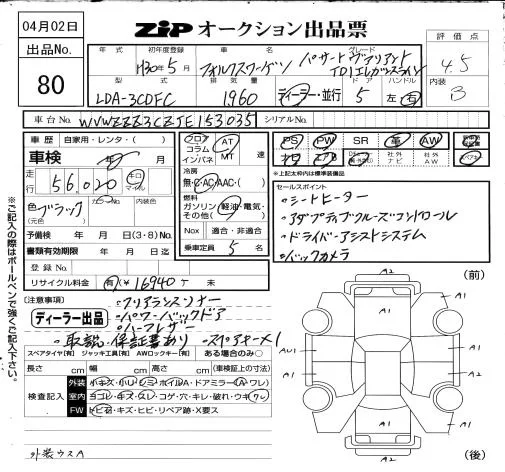 04月02日
ZIP オークション出品票
出品No.
80
年式 初年度登録 車名 グレード
H30年5月 フォルクスワーゲン パサートヴァリアント TDIエレガンスライン
型式 排気量 ドア ハンドル
LDA-3CDFC 1,960 ディーラー・並行 5 左・右
評価点
4.5
内装
B
車台No. WVWZZZ3CZJE153035 シリアルNo.
車歴 自家用・レンタ・( )
車検 年 月
走行 56,020 キロ マイル
色 ブラック カラーNo. 内装色
(元色)
予備検 年 月 日(3・8)No.
書類有効期限 年 月 日迄
登録No.
リサイクル料金 有(¥16940) 未
フロア コラム インパネ AT MT 速
冷房
無・C・AC・AAC・( )
燃料
ガソリン・軽油・電気・その他( )
Nox 適合・非適合
乗車定員 5 名
PS PW SR 革 AW
ナビ 社外AW
※上記太枠内は標準装備品
セールスポイント
・シートヒーター
・アダプティブクルーズコントロール
・ドライバーアシストシステム
・バックカメラ
(注意事項)
ディーラー出品
・クリアランスソナー
・パワーバックドア
・ハーフレザー
・取説・保証書あり ・スペアキー×1
スペアタイヤ【有】 ジャッキ工具【有】 AWロックキー【有】 ある場合のみ○
長さ cm 幅 cm 高さ cm (車検証上の寸法)
検査記入
外装 小キズ・小凹・シミ・ホイルA・ドアミラー(A・ワレ)
室内 ヨゴレ・キズ・スレ・コゲ・穴・キレ・破れ・ウキ・ワレ
FW トビ石・キズ・ヒビ・リペア跡・X要ス
外装ウスA
※ご記入の際はボールペンで強くご記入下さい。
(前)
A2
A1
A1
AU1
A1
A1
A1
A2
(後)